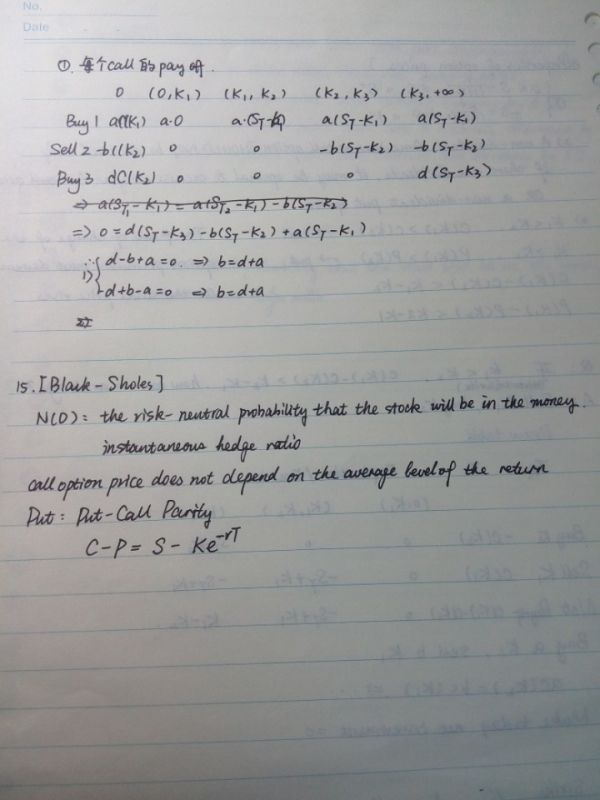 No.
Date
①. 每个call的pay off.
0 (0,K₁) (K₁, K₂) (K₂, K₃) (K₃, +∞)
Buy 1 aC(K₁) a·0 a·(S_T-K₁) a(S_T-K₁) a(S_T-K₁)
Sell 2 -b((K₂) 0 0 -b(S_T-K₂) -b(S_T-K₂)
Buy 3 dC(K₂) 0 0 0 d(S_T-K₃)
⇒ a(S_T₁-K₁) = a(S_T₂-K₁)-b(S_T-K₂)
⇒ 0=d(S_T-K₃)-b(S_T-K₂)+a(S_T-K₁)
∴ d-b+a=0. ⇒ b=d+a
1) -d+b-a=0 ⇒ b=d+a
15.[Black-Sholes]
N(D): the risk-neutral probability that the stock will be in the money.
instantaneous hedge ratio
call option price does not depend on the average level of the return
Put: Put-Call Parity
C-P= S- Ke^-rT